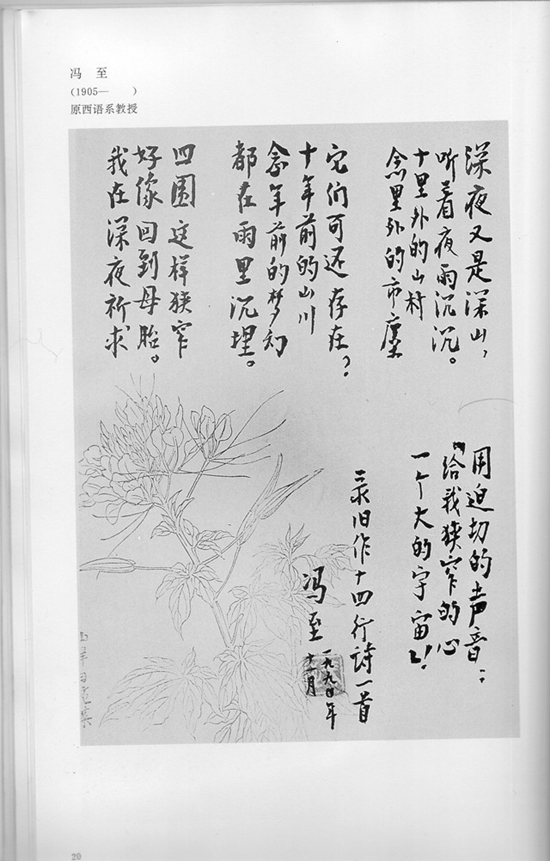 冯 至
(1905— )
原西语系教授
深夜又是深山,
听着夜雨沉沉。
十里外的山村
念里外的市廛
它们可还存在?
十年前的山川
念年前的梦幻
都在雨里沉埋。
四围这样狭窄
好像回到母胎。
我在深夜祈求
用迫切的声音:
“给我狭窄的心
一个大的宇宙!”
录旧作十四行詩一首
冯至
一九九〇年
月
20